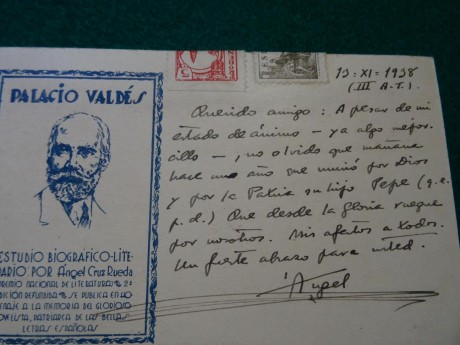 PALACIO VALDÉS
ESTUDIO BIOGRÁFICO-LITE-
RARIO POR Ángel Cruz Rueda
PREMIO NACIONAL DE LITERATURA 2ª
EDICIÓN REFUNDIDA SE PUBLICA EN HO
MENAJE A LA MEMORIA DEL GLORIOSO
NOVELISTA, PATRIARCA DE LAS BELLAS
LETRAS ESPAÑOLAS
13-XI-1938
(III A.T.)
Querido amigo: A pesar de mi
estado de ánimo - ya algo mejor-
cillo -, no olvido que mañana
hace un año que murió por Dios
y por la Patria su hijo Pepe (q.e.
p.d.) Que desde la Gloria ruegue
por nosotros. Mis afectos a todos.
Un fuerte abrazo para usted.
Ángel